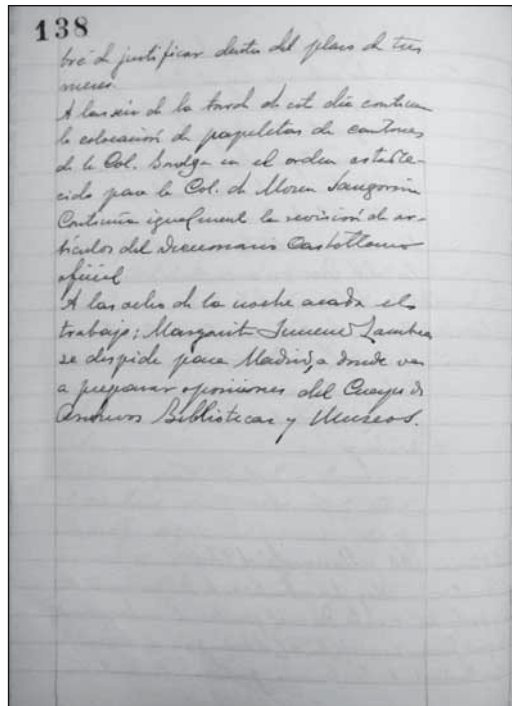 138
bré de justificar dentro del plazo de tres
meses.
A las seis de la tarde de este día continua
la colocación de papeletas de cantones
de la Col. en el orden estable-
cido para la Col. de Moren Sangorrin
Continúa igualmente la revisión de ar-
tículos del Diccionario Castellano
oficial
A las ocho de la noche acaba el
trabajo; Margarita Jimeno Lambea
se despide para Madrid, a donde va
a preparar oposiciones del Cuerpo de
Archivos Bibliotecas y Museos.